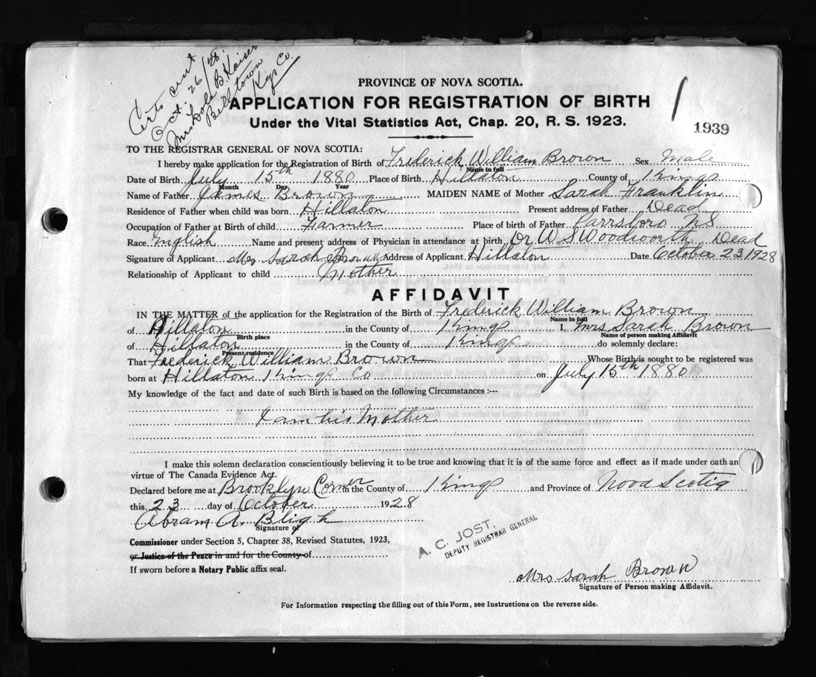 Certs sent
Oct. 26/28
Mrs B. Kaiser
Billtown
Kgs Co.
PROVINCE OF NOVA SCOTIA.
APPLICATION FOR REGISTRATION OF BIRTH
Under the Vital Statistics Act, Chap. 20, R. S. 1923.
1
1939
TO THE REGISTRAR GENERAL OF NOVA SCOTIA:
I hereby make application for the Registration of Birth of Frederick William Brown Sex Male
Name in full
Date of Birth July 15th 1880 Place of Birth Hillaton County of Kings
Month Day Year
Name of Father James Brown MAIDEN NAME of Mother Sarah Franklin
Residence of Father when child was born Hillaton Present address of Father Dead
Occupation of Father at Birth of child Farmer Place of birth of Father Parrsboro NS
Race English Name and present address of Physician in attendance at birth Dr W S Woodworth Dead
Signature of Applicant Mrs Sarah Brown Address of Applicant Hillaton Date October 23 1928
Relationship of Applicant to child Mother
AFFIDAVIT
IN THE MATTER of the application for the Registration of the Birth of Frederick William Brown
Name in full
of Hillaton in the County of Kings I, Mrs Sarah Brown
Birth place Name of person making Affidavit
of Hillaton in the County of Kings do solemnly declare:
Present residence
That Frederick William Brown Whose Birth is sought to be registered was
born at Hillaton Kings Co on July 15th 1880
My knowledge of the fact and date of such Birth is based on the following Circumstances :—
I am his Mother
I make this solemn declaration conscientiously believing it to be true and knowing that it is of the same force and effect as if made under oath an
virtue of The Canada Evidence Act.
Declared before me at Brooklyn Corner in the County of Kings and Province of Nova Scotia
this 23 day of October 1928
Abram A. Bligh
Signature of
Commissioner under Section 5, Chapter 38, Revised Statutes, 1923,
or Justice of the Peace in and for the County of
If sworn before a Notary Public affix seal.
A. C. JOST,
DEPUTY REGISTRAR GENERAL
Mrs Sarah Brown
Signature of Person making Affidavit.
For Information respecting the filling out of this Form, see Instructions on the reverse side.